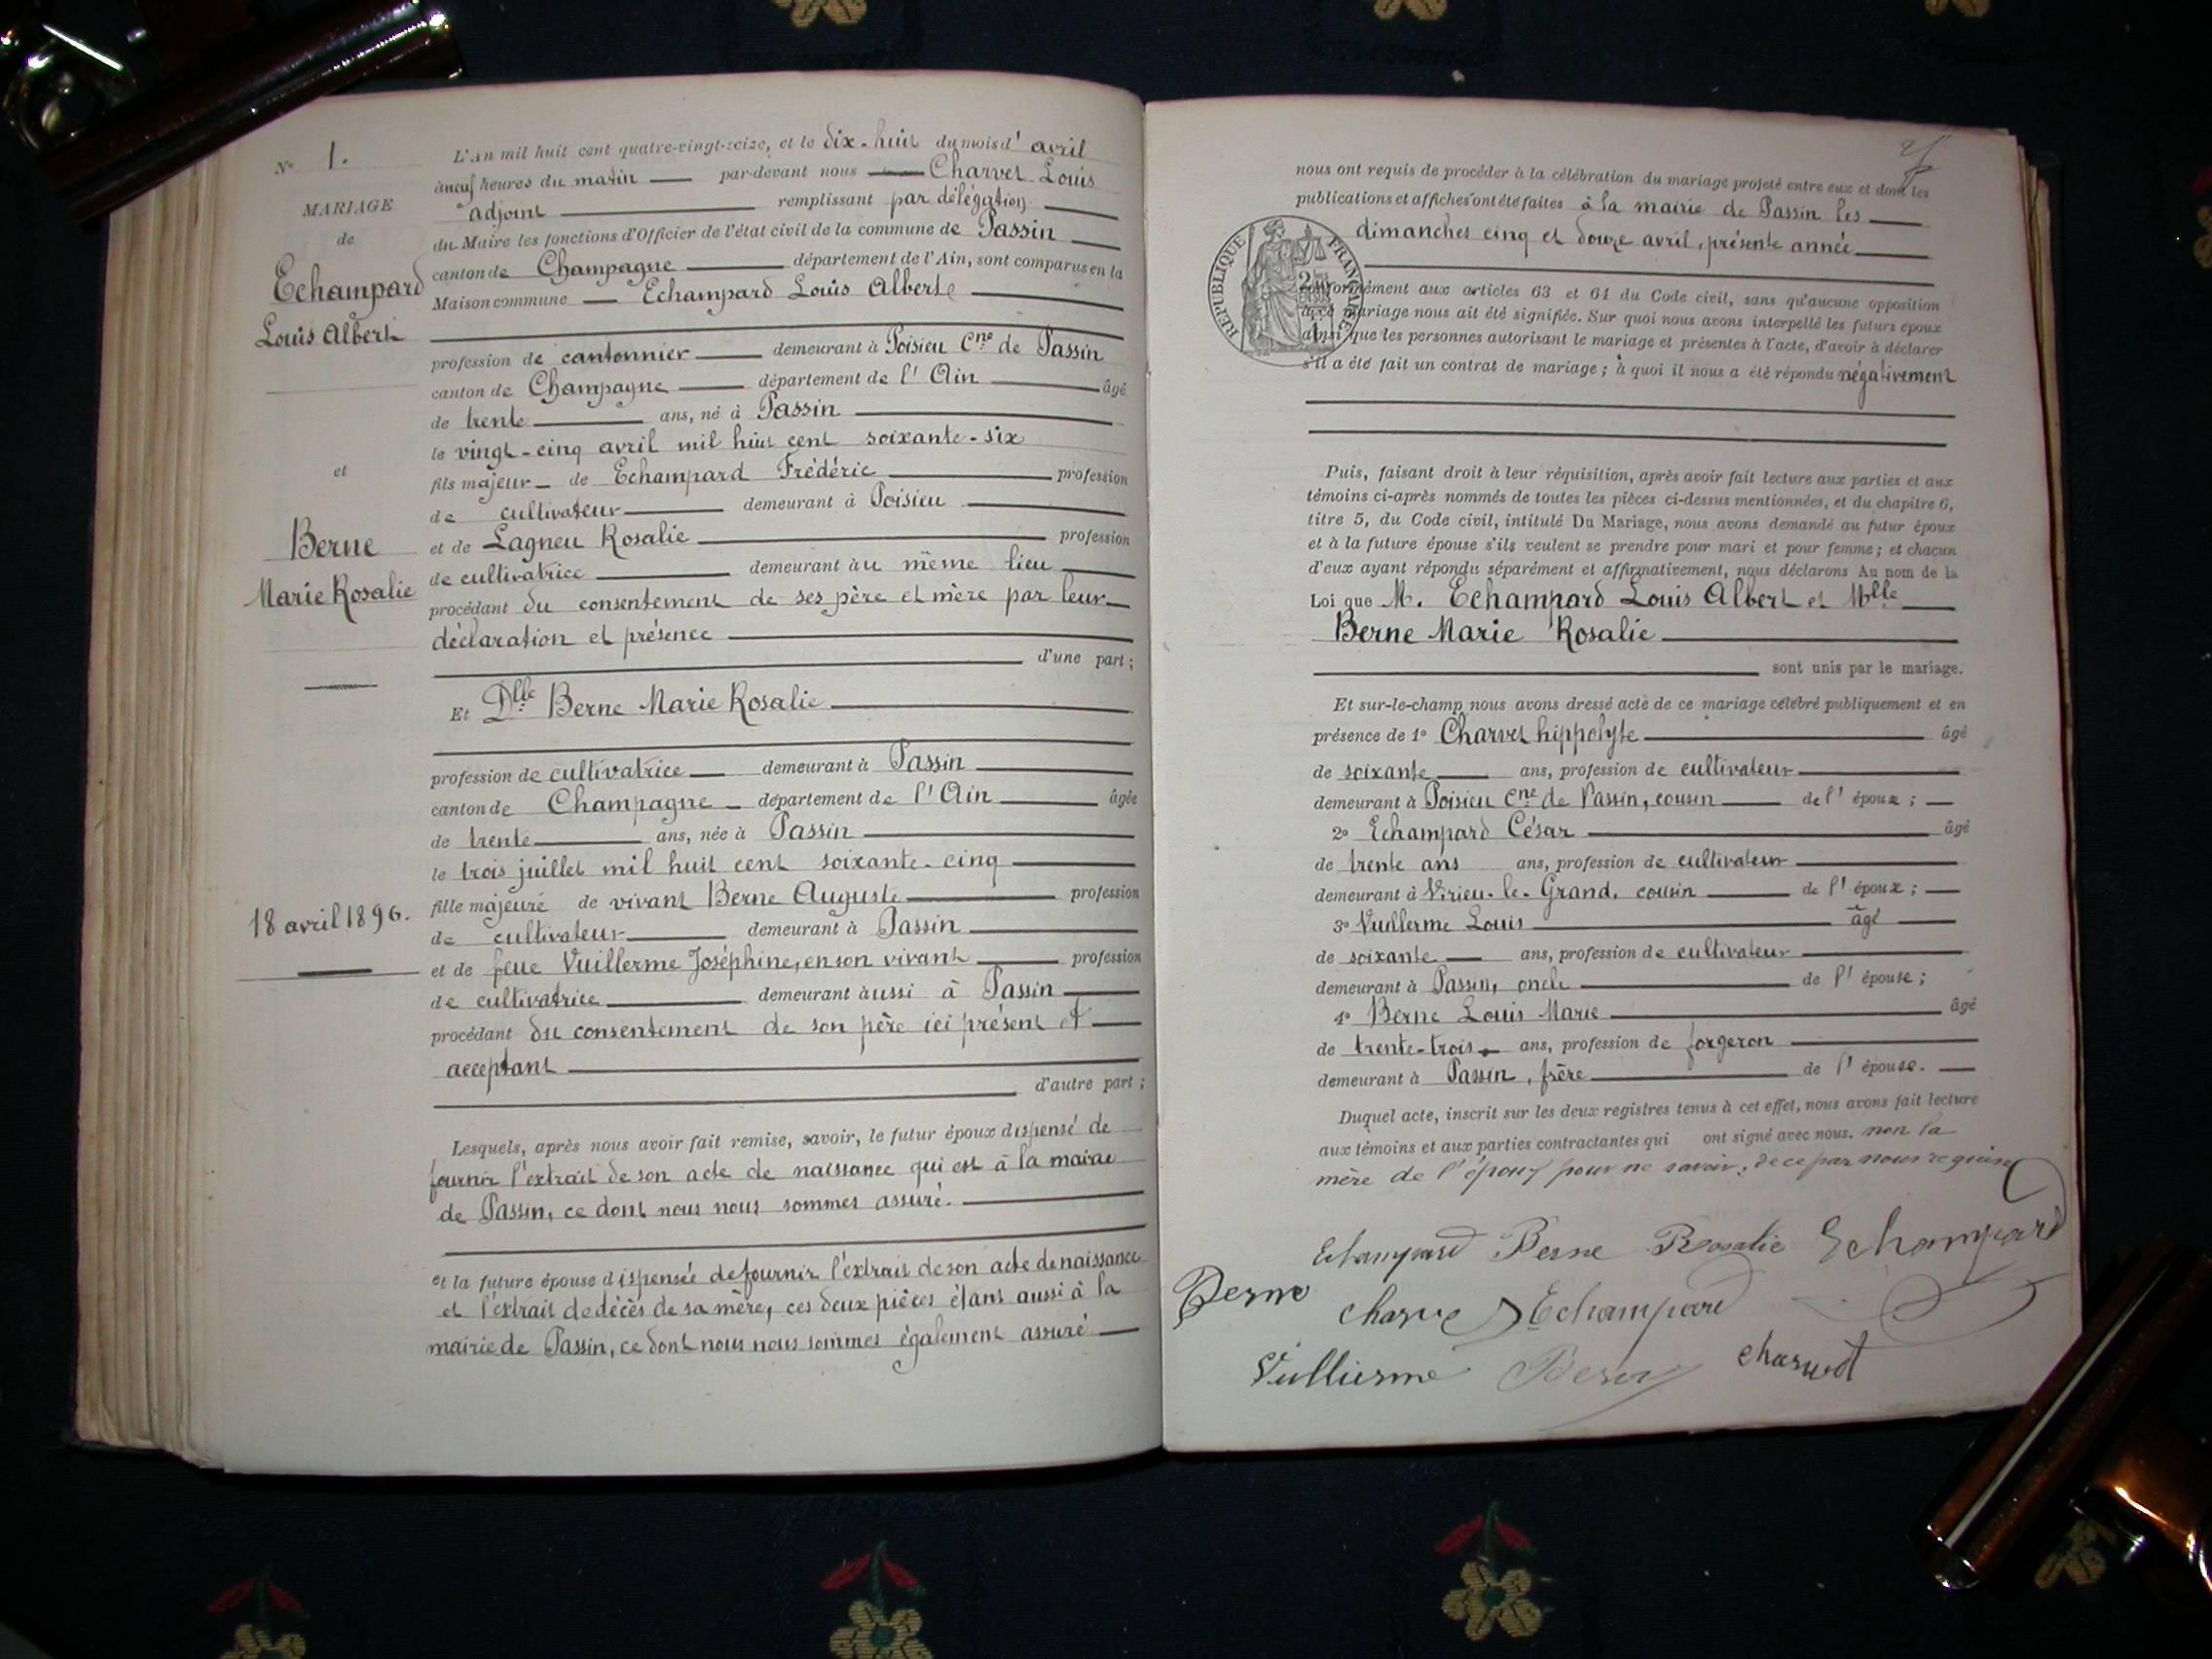 N° 1.
MARIAGE
de
Echampard
Louis Albert
et
Berne
Marie Rosalie
18 avril 1896.
L'An mil huit cent quatre-vingt-seize, et le dix-huit du mois d'avril
à neuf heures du matin par-devant nous Charvet Louis
adjoint remplissant par délégation
du Maire les fonctions d'Officier de l'état civil de la commune de Passin
canton de Champagne département de l'Ain, sont comparus en la
Maison commune Echampard Louis Albert
profession de cantonnier demeurant à Poisieu Cne de Passin
canton de Champagne département de l'Ain âgé
de trente ans, né à Passin
le vingt-cinq avril mil huit cent soixante-six
fils majeur de Echampard Frédéric profession
de cultivateur demeurant à Poisieu
et de Lagneu Rosalie profession
de cultivatrice demeurant au même lieu
procédant du consentement de ses père et mère par leur
déclaration et présence
d'une part ;
Et Dlle Berne Marie Rosalie
profession de cultivatrice demeurant à Passin
canton de Champagne département de l'Ain âgée
de trente ans, née à Passin
le trois juillet mil huit cent soixante-cinq
fille majeure de vivant Berne Auguste profession
de cultivateur demeurant à Passin
et de feue Vuillerme Joséphine, en son vivant profession
de cultivatrice demeurant aussi à Passin
procédant du consentement de son père ici présent et
acceptant
d'autre part ;
Lesquels, après nous avoir fait remise, savoir, le futur époux dispensé de
fournir l'extrait de son acte de naissance qui est à la mairie
de Passin, ce dont nous nous sommes assuré.
et la future épouse dispensée de fournir l'extrait de son acte de naissance
et l'extrait de décès de sa mère, ces deux pièces étant aussi à la
mairie de Passin, ce dont nous nous sommes également assuré
nous ont requis de procéder à la célébration du mariage projeté entre eux et dont les
publications et affiches ont été faites à la mairie de Passin les
dimanches cinq et douze avril, présente année
RÉPUBLIQUE FRANÇAISE
conformément aux articles 63 et 64 du Code civil, sans qu'aucune opposition
à ce mariage nous ait été signifiée. Sur quoi nous avons interpellé les futurs époux
ainsi que les personnes autorisant le mariage et présentes à l'acte, d'avoir à déclarer
s'il a été fait un contrat de mariage ; à quoi il nous a été répondu négativement
Puis, faisant droit à leur réquisition, après avoir fait lecture aux parties et aux
témoins ci-après nommés de toutes les pièces ci-dessus mentionnées, et du chapitre 6,
titre 5, du Code civil, intitulé Du Mariage, nous avons demandé au futur époux
et à la future épouse s'ils veulent se prendre pour mari et pour femme ; et chacun
d'eux ayant répondu séparément et affirmativement, nous déclarons Au nom de la
Loi que M. Echampard Louis Albert et Mlle
Berne Marie Rosalie
sont unis par le mariage.
Et sur-le-champ nous avons dressé acte de ce mariage célébré publiquement et en
présence de 1° Charvet hippolyte âgé
de soixante ans, profession de cultivateur
demeurant à Poisieu Cne de Passin, cousin de l'époux ;
2° Echampard César âgé
de trente ans ans, profession de cultivateur
demeurant à Virieu-le-Grand, cousin de l'époux ;
3° Vuillerme Louis âgé
de soixante ans, profession de cultivateur
demeurant à Passin, oncle de l'épouse ;
4° Berne Louis Marie âgé
de trente-trois ans, profession de forgeron
demeurant à Passin, frère de l'épouse.
Duquel acte, inscrit sur les deux registres tenus à cet effet, nous avons fait lecture
aux témoins et aux parties contractantes qui ont signé avec nous. non la
mère de l'époux pour ne savoir, de ce par nous requise
Echampard Berne Rosalie Echampard
Berne Charvet Echampard
Vullierme Berne charvet